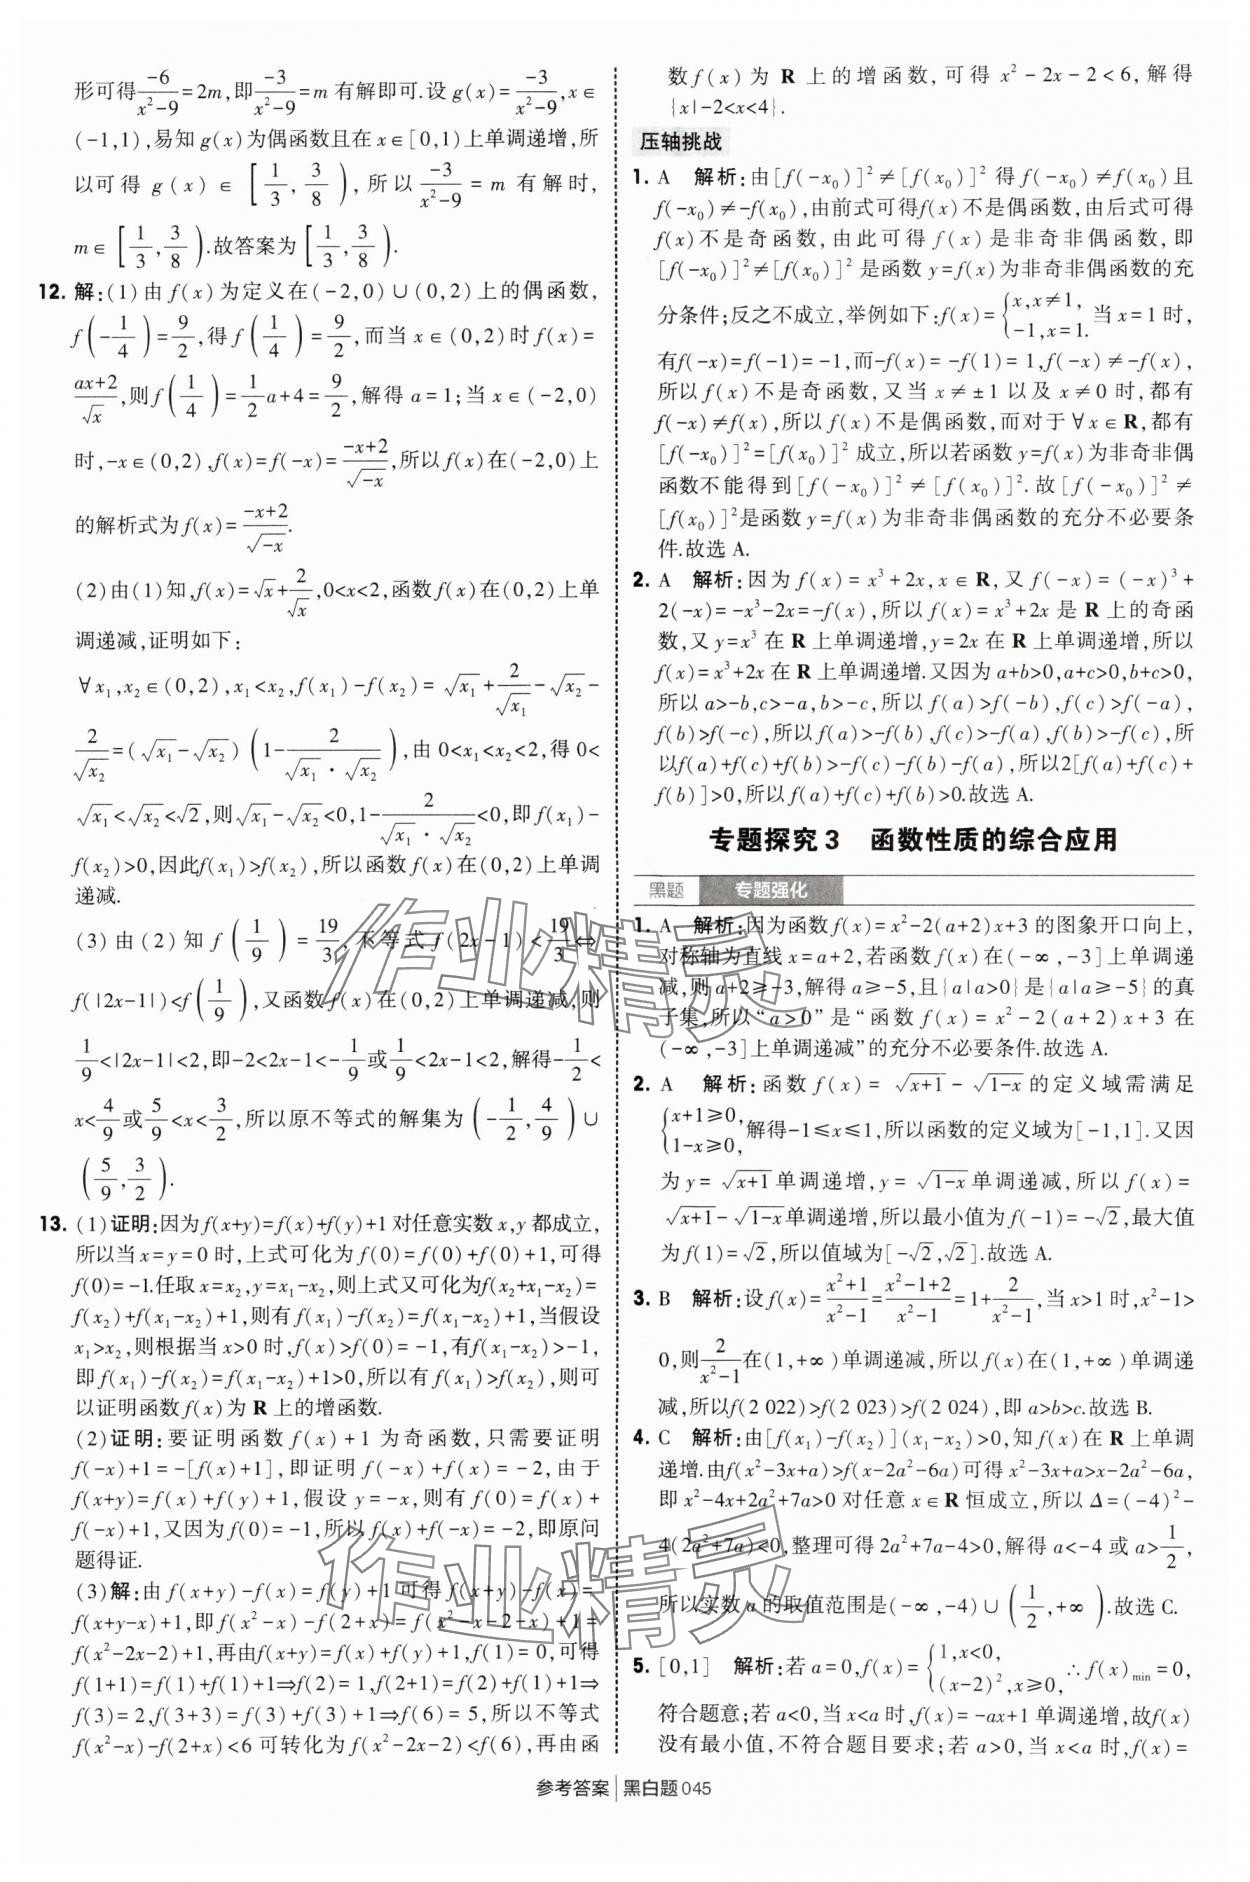 形可得$\frac{-6}{x^2-9}$=2m,即$\frac{-3}{x^2-9}$=m 有解即可.设 g(x)=$\frac{-3}{x^2-9}$,x∈
(-1,1),易知 g(x)为偶函数且在 x∈[0,1)上单调递增,所
以可得 g(x)∈$\left[\frac{1}{3},\frac{3}{8}\right)$,所以$\frac{-3}{x^2-9}$=m 有解时,
m∈$\left[\frac{1}{3},\frac{3}{8}\right)$.故答案为$\left[\frac{1}{3},\frac{3}{8}\right)$.
12. 解:(1)由 f(x)为定义在(-2,0)∪(0,2)上的偶函数,
$f\left(-\frac{1}{4}\right)=\frac{9}{2}$,得$f\left(\frac{1}{4}\right)=\frac{9}{2}$,而当 x∈(0,2)时 f(x)=
$\frac{ax+2}{\sqrt{x}}$,则$f\left(\frac{1}{4}\right)=\frac{1}{2}a+4=\frac{9}{2}$,解得 a=1;当 x∈(-2,0)
时,-x∈(0,2),f(x)=f(-x)=$\frac{-x+2}{\sqrt{-x}}$,所以 f(x)在(-2,0)上
的解析式为 f(x)=$\frac{-x+2}{\sqrt{-x}}$.
(2)由(1)知,f(x)=$\sqrt{x}+\frac{2}{\sqrt{x}}$,0<x<2,函数 f(x)在(0,2)上单
调递减,证明如下:
∀x₁,x₂∈(0,2),x₁<x₂,f(x₁)-f(x₂)=$\sqrt{x_1}+\frac{2}{\sqrt{x_1}}-\sqrt{x_2}-$
$\frac{2}{\sqrt{x_2}}=(\sqrt{x_1}-\sqrt{x_2})\left(1-\frac{2}{\sqrt{x_1}\cdot\sqrt{x_2}}\right)$,由 0<x₁<x₂<2,得 0<
$\sqrt{x_1}<\sqrt{x_2}<\sqrt{2}$,则$\sqrt{x_1}-\sqrt{x_2}<0,1-\frac{2}{\sqrt{x_1}\cdot\sqrt{x_2}}<0$,即 f(x₁)-
f(x₂)>0,因此f(x₁)>f(x₂),所以函数 f(x)在(0,2)上单调
递减.
(3)由(2)知$f\left(\frac{1}{9}\right)=\frac{19}{3}$,不等式 f(2x-1)<$\frac{19}{3}$⇔
f(|2x-1|)<$f\left(\frac{1}{9}\right)$,又函数 f(x)在(0,2)上单调递减,则
$\frac{1}{9}$<|2x-1|<2,即-2<2x-1<$-\frac{1}{9}$或$\frac{1}{9}$<2x-1<2,解得$-\frac{1}{2}$<
x<$\frac{4}{9}$或$\frac{5}{9}$<x<$\frac{3}{2}$,所以原不等式的解集为$\left(-\frac{1}{2},\frac{4}{9}\right)$∪
$\left(\frac{5}{9},\frac{3}{2}\right)$.
13. (1)证明:因为 f(x+y)=f(x)+f(y)+1 对任意实数 x,y 都成立,
所以当 x=y=0 时,上式可化为 f(0)=f(0)+f(0)+1,可得
f(0)=-1.任取 x=x₂,y=x₁-x₂,则上式又可化为f(x₂+x₁-x₂)=
f(x₂)+f(x₁-x₂)+1,则有 f(x₁)-f(x₂)=f(x₁-x₂)+1,当假设
x₁>x₂,则根据当 x>0 时,f(x)>f(0)=-1,有f(x₁-x₂)>-1,
即 f(x₁)-f(x₂)=f(x₁-x₂)+1>0,所以有 f(x₁)>f(x₂),则可
以证明函数 f(x)为 R 上的增函数.
(2)证明:要证明函数 f(x)+1 为奇函数,只需要证明
f(-x)+1=-[f(x)+1],即证明 f(-x)+f(x)=-2,由于
f(x+y)=f(x)+f(y)+1,假设 y=-x,则有 f(0)=f(x)+
f(-x)+1,又因为 f(0)=-1,所以 f(x)+f(-x)=-2,即原问
题得证.
(3)解:由 f(x+y)-f(x)=f(y)+1 可得 f(x+y)-f(x)=
f(x+y-x)+1,即 f(x²-x)-f(2+x)=f(x²-x-2-x)+1=
f(x²-2x-2)+1,再由f(x+y)=f(x)+f(y)+1,f(1)=0,可得
f(1+1)=f(1)+f(1)+1⇒f(2)=1,f(2+1)=f(2)+f(1)+1⇒
f(3)=2,f(3+3)=f(3)+f(3)+1⇒f(6)=5,所以不等式
f(x²-x)-f(2+x)<6 可转化为 f(x²-2x-2)<f(6),再由函
数 f(x)为 R 上的增函数,可得 x²-2x-2<6,解得
{x|-2<x<4}.
压轴挑战
1. A 解析:由[f(-x₀)]²≠[f(x₀)]² 得 f(-x₀)≠f(x₀)且
f(-x₀)≠-f(x₀),由前式可得f(x)不是偶函数,由后式可得
f(x)不是奇函数,由此可得 f(x)是非奇非偶函数,即
[f(-x₀)]²≠[f(x₀)]² 是函数 y=f(x)为非奇非偶函数的充
分条件;反之不成立,举例如下:f(x)=$\begin{cases}x,x≠1,\\-1,x=1.\end{cases}$当 x=1 时,
有f(-x)=f(-1)=-1,而-f(x)=-f(1)=1,f(-x)≠-f(x),
所以 f(x)不是奇函数,又当 x≠±1 以及 x≠0 时,都有
f(-x)≠f(x),所以 f(x)不是偶函数,而对于∀x∈R,都有
[f(-x₀)]²=[f(x₀)]² 成立,所以若函数 y=f(x)为非奇非偶
函数不能得到[f(-x₀)]²≠[f(x₀)]².故[f(-x₀)]²≠
[f(x₀)]²是函数 y=f(x)为非奇非偶函数的充分不必要条
件.故选 A.
2. A 解析:因为 f(x)=x³+2x,x∈R,又 f(-x)=(-x)³+
2(-x)=-x³-2x=-f(x),所以 f(x)=x³+2x 是 R 上的奇函
数,又 y=x³ 在 R 上单调递增,y=2x 在 R 上单调递增,所以
f(x)=x³+2x 在 R 上单调递增.又因为 a+b>0,a+c>0,b+c>0,
所以 a>-b,c>-a,b>-c,所以 f(a)>f(-b),f(c)>f(-a),
f(b)>f(-c),所以 f(a)>-f(b),f(c)>-f(a),f(b)>-f(c),所
以f(a)+f(c)+f(b)>-f(c)-f(b)-f(a),所以2[f(a)+f(c)+
f(b)]>0,所以 f(a)+f(c)+f(b)>0.故选 A.
专题探究3 函数性质的综合应用
黑题 专题强化
1. A 解析:因为函数 f(x)=x²-2(a+2)x+3 的图象开口向上,
对称轴为直线 x=a+2,若函数在(-∞,-3]上单调递
减,则 a+2≥-3,解得 a≥-5,且{a|a>0}是{a|a≥-5}的真
子集,所以“a>0”是“函数 f(x)=x²-2(a+2)x+3 在
(-∞,-3]上单调递减”的充分不必要条件.故选 A.
2. A 解析:函数 f(x)=$\sqrt{x+1}-\sqrt{1-x}$的定义域需满足
$\begin{cases}x+1≥0,\\1-x≥0,\end{cases}$解得-1≤x≤1,所以函数的定义域为[-1,1].又因
为 y=$\sqrt{x+1}$单调递增,y=$\sqrt{1-x}$单调递减,所以 f(x)=
$\sqrt{x+1}-\sqrt{1-x}$单调递增,所以最小值为 f(-1)=$-\sqrt{2}$,最大值
为 f(1)=$\sqrt{2}$,所以值域为$[-\sqrt{2},\sqrt{2}]$.故选 A.
3. B 解析:设 f(x)=$\frac{x^2+1}{x^2-1}=\frac{x^2-1+2}{x^2-1}=1+\frac{2}{x^2-1}$,当 x>1 时,x²-1>
0,则$\frac{2}{x^2-1}$在(1,+∞)单调递减,所以 f(x)在(1,+∞)单调递
减,所以f(2 022)>f(2 023)>f(2 024),即 a>b>c.故选 B.
4. C 解析:由[f(x₁)-f(x₂)](x₁-x₂)>0,知 f(x)在 R 上单调
递增.由f(x²-3x+a)>f(x-2a²-6a)可得 x²-3x+a>x-2a²-6a,
即 x²-4x+2a²+7a>0 对任意 x∈R 恒成立,所以 Δ=(-4)²-
4(2a²+7a)<0,整理可得 2a²+7a-4>0,解得 a<-4 或 a>$\frac{1}{2}$,
所以实数 a 的取值范围是(-∞,-4)∪$\left(\frac{1}{2},+∞\right)$.故选 C.
5. [0,1] 解析:若 a=0,f(x)=$\begin{cases}1,x<0,\\(x-2)^2,x≥0,\end{cases}$∴f(x)$_{min}$=0,
符合题意;若 a<0,当 x<a 时,f(x)=-ax+1 单调递增,故f(x)
没有最小值,不符合题目要求;若 a>0,当 x<a 时,f(x)=
参考答案 黑白题 045
作业精灵
作业精灵